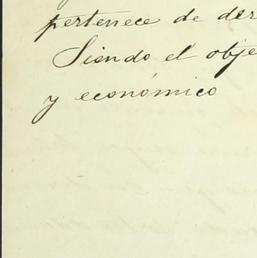 pertenece de der
Siendo el obje
y económico